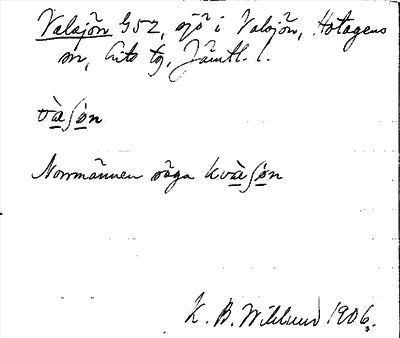 Valsjön G52, sjö i Valsjön, Hotagens
sn, Lits tg, Jämtl.
và̱ʃø̱n
Norrmännen säga kvà̱ʃø̱n
K. B. Wiklund 1906.